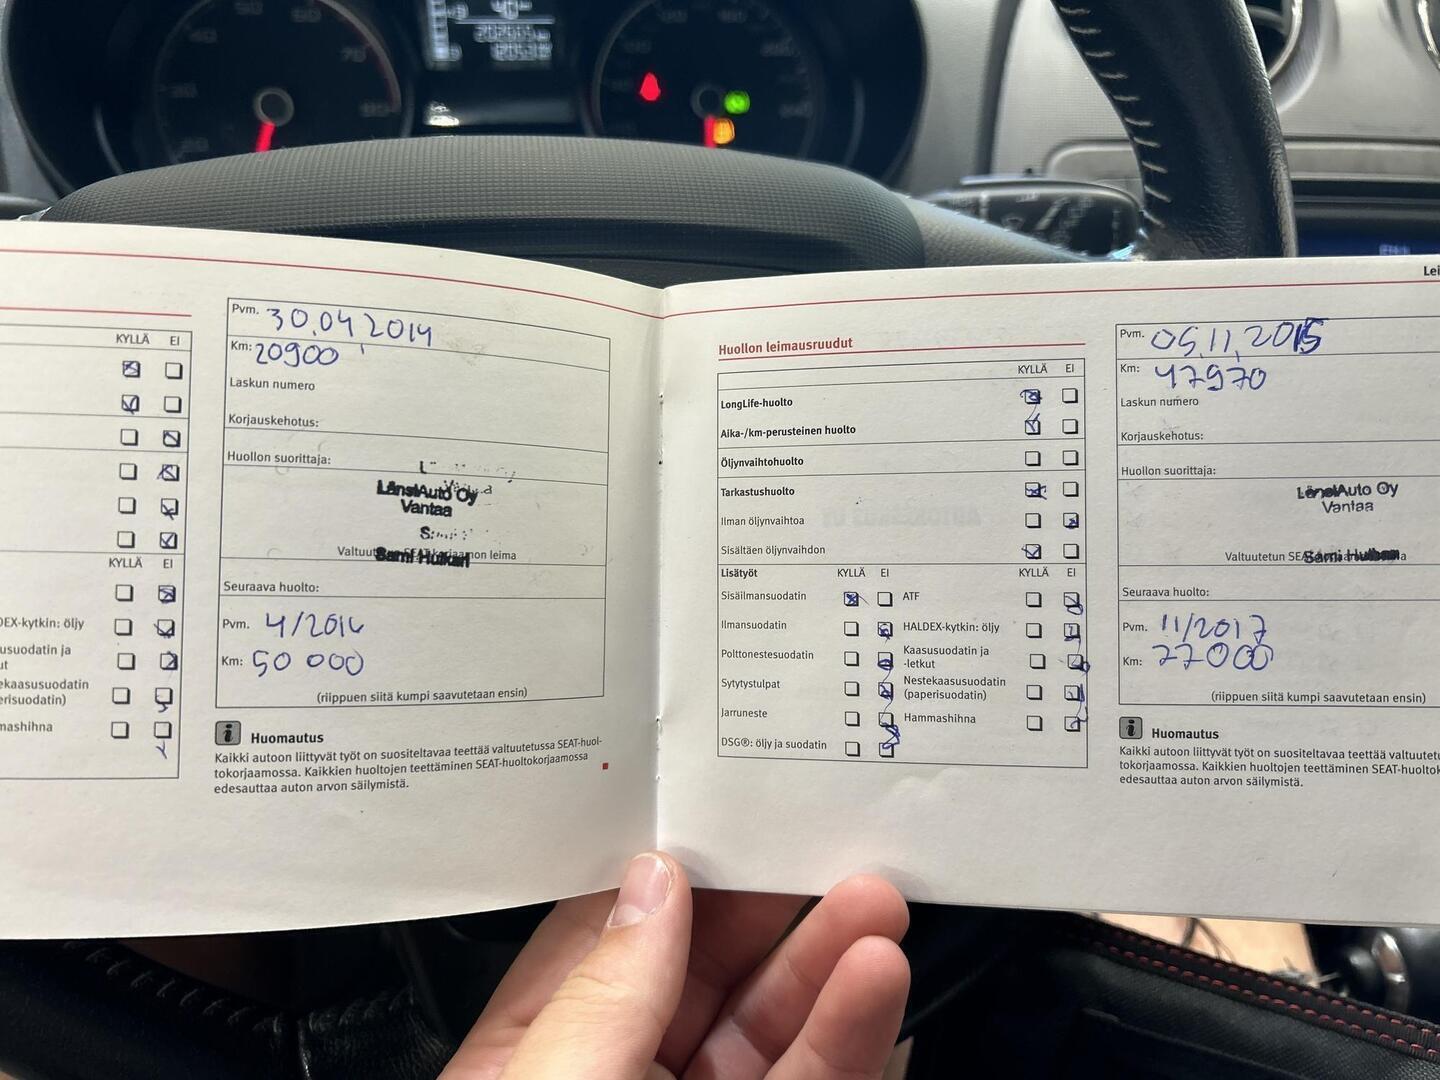 KYLLÄ EI
KYLLÄ EI
DEX-kytkin: öljy
usuodatin ja
ut
ekaasusuodatin
erisuodatin)
mashihna
Pvm. 30.04.2014
Km: 20900
Laskun numero
Korjauskehotus:
Huollon suorittaja:
LänsiAuto Oy
Vantaa
Seuraava huolto:
Pvm. 4/2016
Km: 50 000
(riippuen siitä kumpi saavutetaan ensin)
i Huomautus
Kaikki autoon liittyvät työt on suositeltavaa teettää valtuutetussa SEAT-huol-
tokorjaamossa. Kaikkien huoltojen teettäminen SEAT-huoltokorjaamossa
edesauttaa auton arvon säilymistä.
Lei
Huollon leimausruudut
KYLLÄ EI
LongLife-huolto
Aika-/km-perusteinen huolto
Öljynvaihtohuolto
Tarkastushuolto
Ilman öljynvaihtoa
Sisältäen öljynvaihdon
Lisätyöt KYLLÄ EI KYLLÄ EI
Sisäilmansuodatin ATF
Ilmansuodatin HALDEX-kytkin: öljy
Polttonestesuodatin Kaasusuodatin ja
-letkut
Sytytystulpat Nestekaasusuodatin
(paperisuodatin)
Jarruneste Hammashihna
DSG®: öljy ja suodatin
Pvm. 05.11.2015
Km: 47970
Laskun numero
Korjauskehotus:
Huollon suorittaja:
LänsiAuto Oy
Vantaa
Valtuutetun
Seuraava huolto:
Pvm. 11/2017
Km: 77000
(riippuen siitä kumpi saavutetaan ensin)
i Huomautus
Kaikki autoon liittyvät työt on suositeltavaa teettää valtuutetu
tokorjaamossa. Kaikkien huoltojen teettäminen SEAT-huoltok
edesauttaa auton arvon säilymistä.